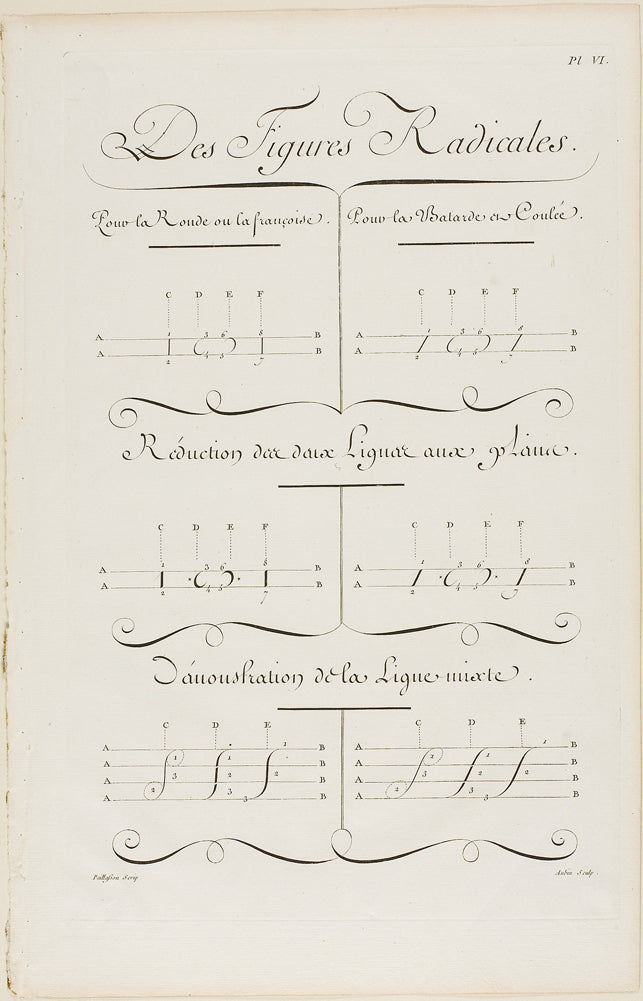 Pl VI.
Des Figures Radicales.
Pour la Ronde ou la françoise. Pour la Batarde et Coulée.
C D E F C D E F
A 1 3 6 8 B A 1 3 6 8 B
A 2 4 5 7 B A 2 4 5 7 B
Réduction des deux Lignes aux plains.
C D E F C D E F
A 1 3 6 8 B A 1 3 6 8 B
A 2 4 5 7 B A 2 4 5 7 B
Démonstration de la Ligne mixte.
C D E C D E
A 1 B A 1 B
A 1 1 B A 1 1 B
A 3 2 2 B A 3 2 2 B
A 2 3 3 B A 2 3 3 B
Paillasson Scrip. Aubin Sculp.